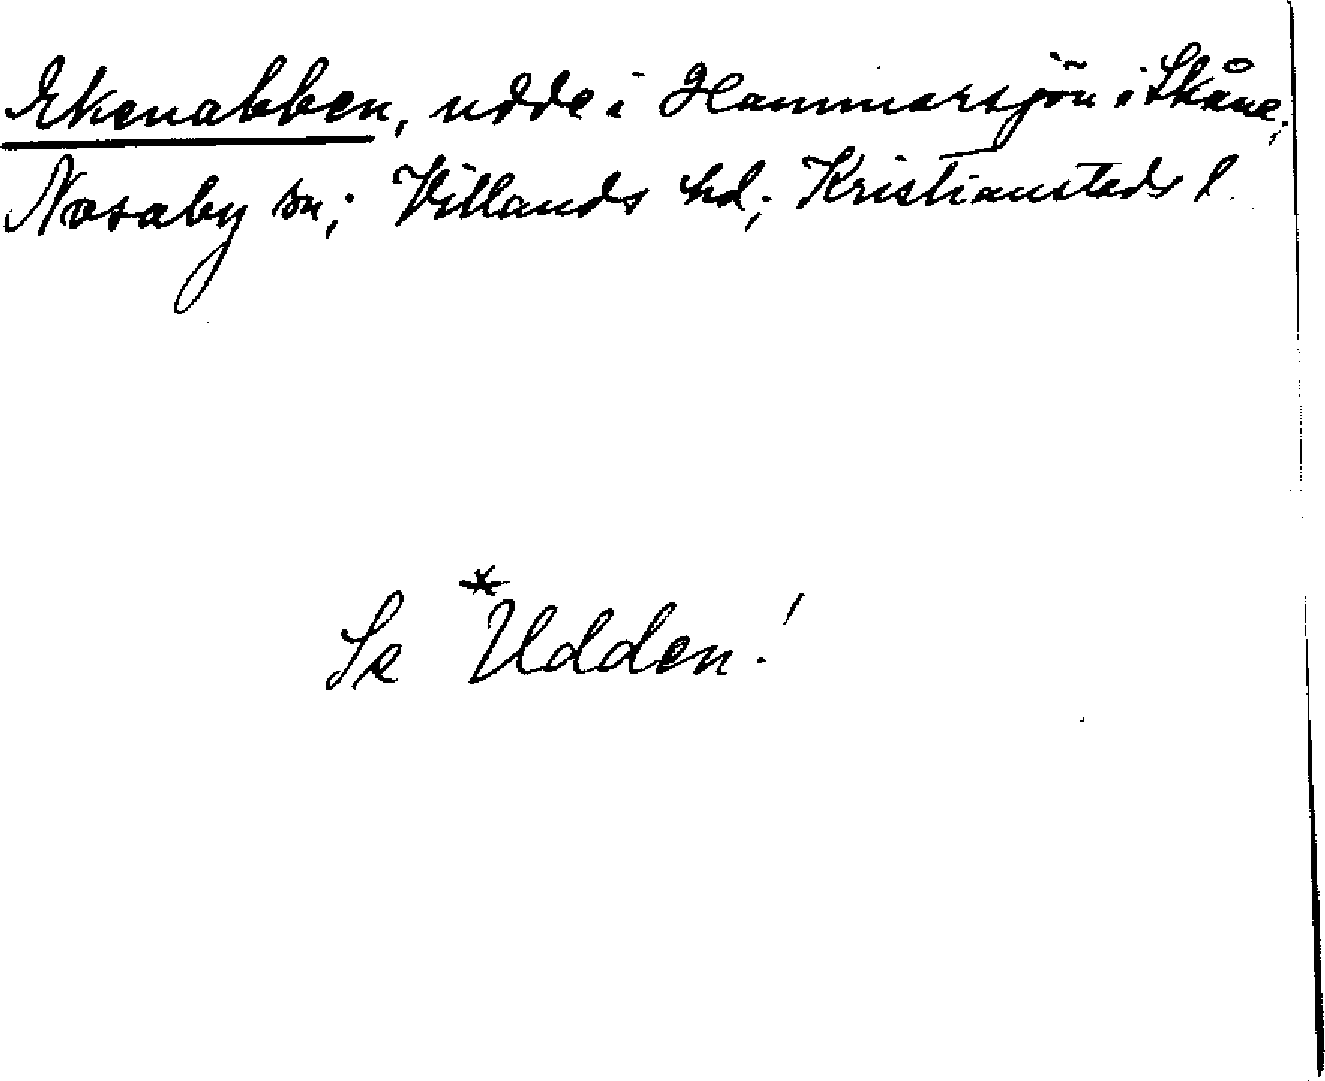 Ekenabben, udde i Hammarsjön i Skåne;
Nosaby sn; Villands hd; Kristianstads l.
Se *Udden!